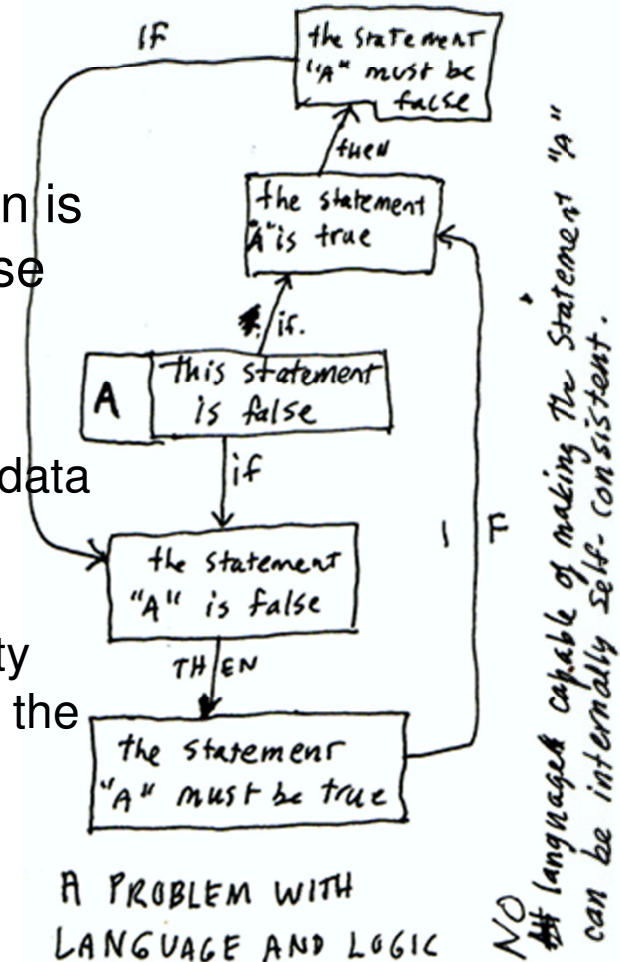 IF
the statement
"A" must be
false
then
the statement
"A" is true
if.
A
This statement
is false
if
the statement
"A" is false
THEN
the statement
"A" must be true
IF
A PROBLEM WITH
LANGUAGE AND LOGIC
NO language capable of making the statement "A"
can be internally self-consistent.
n is
se
data
ty
the